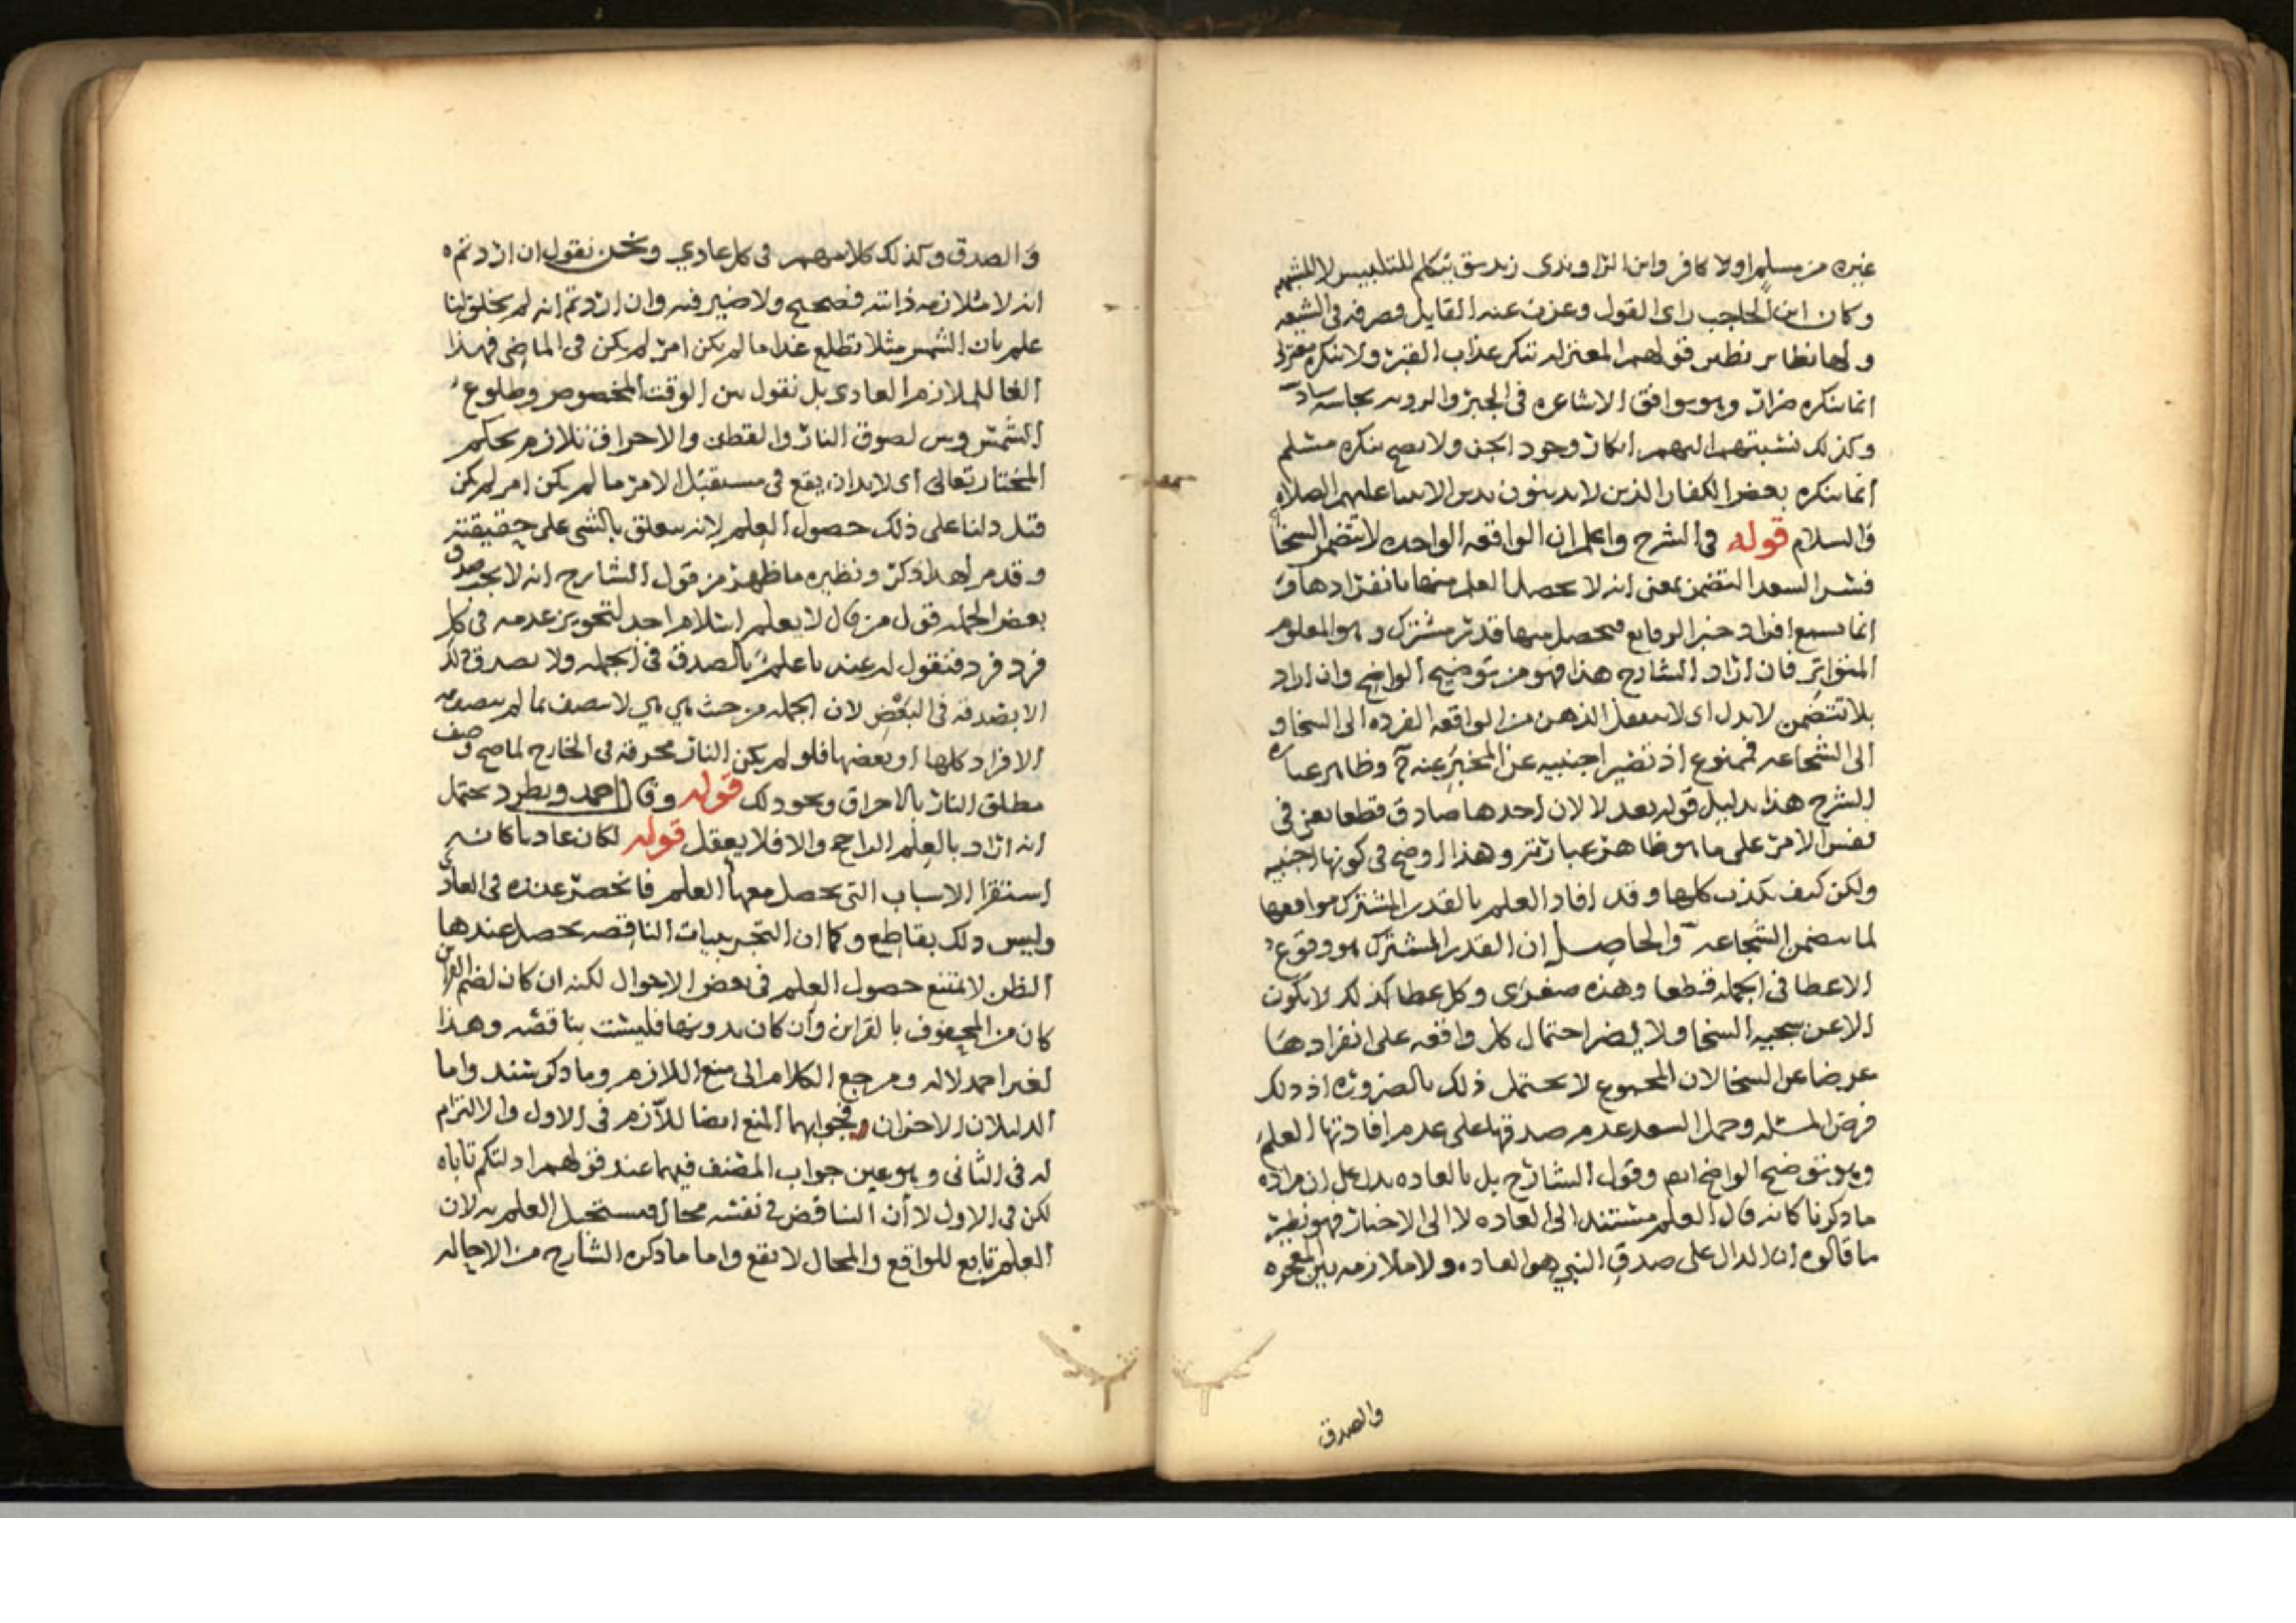 غيره من مسلم ولا كافر وابن الراوندى زنديق يتكلم للتلبيس لا للشبهه
وكان ابن الحاجب راى القول وعزب عنه القايل فصرفه فى الشيعه
ولها نظاير نظير قولهم المعتزله تنكر عذاب القبر ولا ينكره معتزلى
انما ينكره ضرار وهو يوافق الاشاعره فى الجبر والرويه
وكذلك نسبتهم اليهم انكار وجود الجن ولا يصح ينكره مسلم
انما ينكره بعض الكفار الذين لا يدينون بدين الانبيا عليهم الصلاه
والسلام قوله فى الشرح واعلم ان الواقعه الواحده لا تتضمن السخا
فسر السعد التضمن بمعنى انه لا يحصل العلم منها بانفرادها و
انما يسمع افراد خبر الوقايع فيحصل منها قدر مشترك وهو المعلوم
المتواتر فان اراد الشارح هذا فهو من توضيح الواضح وان اراد
بلا تتضمن لا يدل اى لا ينتقل الذهن من الواقعه الفرده الى السخا و
الى الشجاعه فممنوع اذ تصير اجنبيه عن المخبر عنه ح وظاهر عباره
الشرح هذا بدليل قوله بعد لا لان احدها صادق قطعا يعنى فى
نفس الامر على ما هو ظاهر عبارته وهذا اوضح فى كونها اجنبيه
ولكن كيف يكذب كلها وقد افاد العلم بالقدر المشترك
لما يتضمن الشجاعه والحاصل ان القدر المشترك هو وقوع
الاعطا فى الجمله قطعا وهذه صغرى وكل عطا كذلك لا يكون
الا عن سجيه السخا ولا يضر احتمال كل واقعه على انفرادها
عريضا عن السخا لان المجموع لا يحتمل ذلك بالضروره اذ ذلك
فرض المسئله وحمل السعد عدم صدقها على عدم افادتها العلم
وهو توضيح الواضح ايضا وقول الشارح بل بالعاده يدل على ان مراده
ما ذكرنا كانه قال العلم مستند الى العاده لا الى الاخبار فهو نظير
ما قالوه ان الدال على صدق النبي هو العاده ولا ملازمه بين المعجزه
والصدق
والصدق وكذلك كلامهم فى كل عادي ونحن نقول ان اردتم
انه لا ملازمه ذاتيه فصحيح ولا ضير فيه وان اردتم انه لم يخلق لنا
علم بان الشمس مثلا تطلع غدا ما لم يكن امر لم يكن فى الماضى فهذا
الغا للملازم العادى بل نقول بين الوقت المخصوص وطلوع
الشمس وبين لصوق النار والقطن والاحراق تلازم بحكم
المختار تعالى اى لا بد ان يقع فى مستقبل الامر ما لم يكن امر لم يكن
قبل دلنا على ذلك حصول العلم لانه يتعلق بالشى على حقيقته
وقد مر لهذا ذكر ونظيره ما ظهر من قول الشارح انه لا يجب صدق
بعض الجمله قول من قال لا يعلم اسلام احد لتجويز عدمه فى كل
فرد فرد فنقول له عندنا علم بالصدق فى الجمله ولا يصدق ذلك
الا بصدقه فى البعض لان الجمله من حيث هي هي لا تتصف بما لم يتصف به
الافراد كلها او بعضها فلو لم يكن النار محرقه فى الخارج لما صح وصف
مطلق النار بالاحراق ونحو ذلك قوله وقال احمد ويطرد يحتمل
انه اراد بالعلم الراجح والا فلا يعقل قوله لكان عاديا كانه
استقرا الاسباب التى يحصل معها العلم فانحصر عنده فى العادى
وليس ذلك بقاطع وكما ان التجريبيات الناقصه يحصل عندها
الظن لا يمتنع حصول العلم فى بعض الاحوال لكنه ان كان لضم القراين
كان من المحفوف بالقراين وان كان بدونها فليست بناقصه وهذا
لغير احمد لا له ومرجع الكلام الى منع اللازم وما ذكر سند واما
الدليلان الاخران فجوابهما المنع ايضا للازم فى الاول والالتزام
له فى الثانى وهو عين جواب المصنف فيهما عند قولهم ادلتكم تاباه
لكن فى الاول لا ان التناقض فى نفسه محال فيستحيل العلم به لان
العلم تابع للواقع والمحال لا يقع واما ما ذكره الشارح من الاحاله